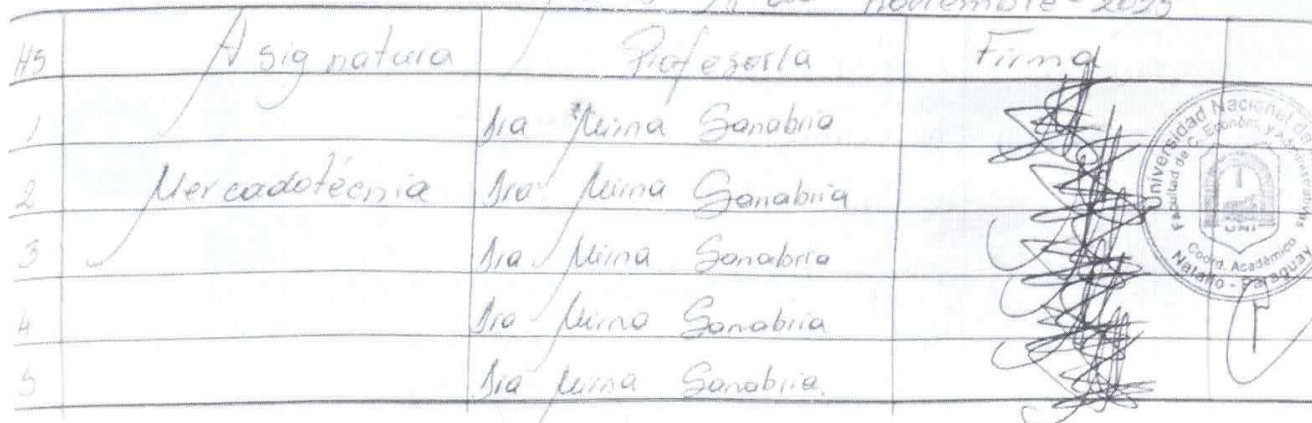 de noviembre - 2023
HS Asignatura Profesor/a Firma
1 Dra Mirna Sanabria
2 Mercadotécnia Dra Mirna Sanabria
3 Dra Mirna Sanabria
4 Dra Mirna Sanabria
5 Dra Mirna Sanabria
Universidad Nacional de
Facultad de C. Económ. y Administrativas
UNI
Coord. Académico
Natalio - Paraguay